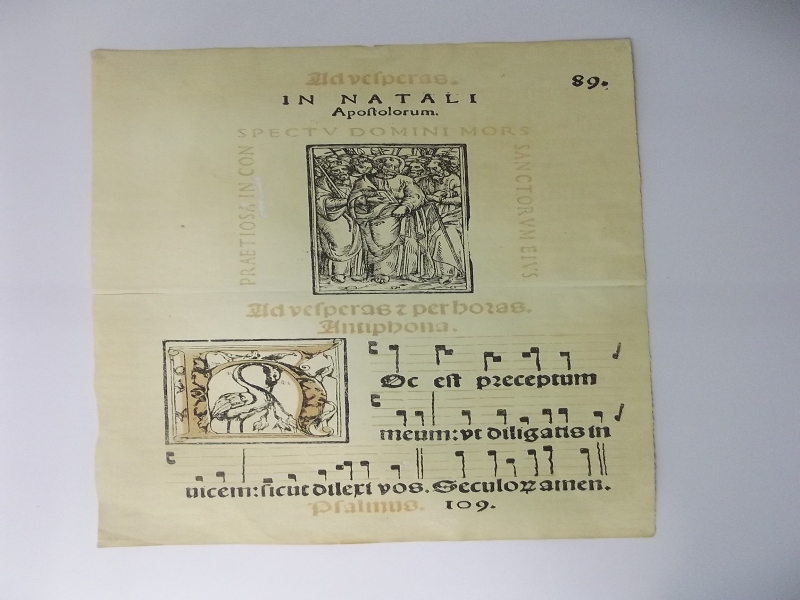 Ad vesperas.
89.
IN NATALI
Apostolorum.
SPECTV DOMINI MORS
PRAETIOSA IN CON
SANCTORVM EIVS
Ad vesperas ⁊ per horas.
Antiphona.
Hoc est preceptum
meum: vt diligatis in
uicem: sicut dilexi vos. Seculoꝝ amen.
Psalmus. 109.